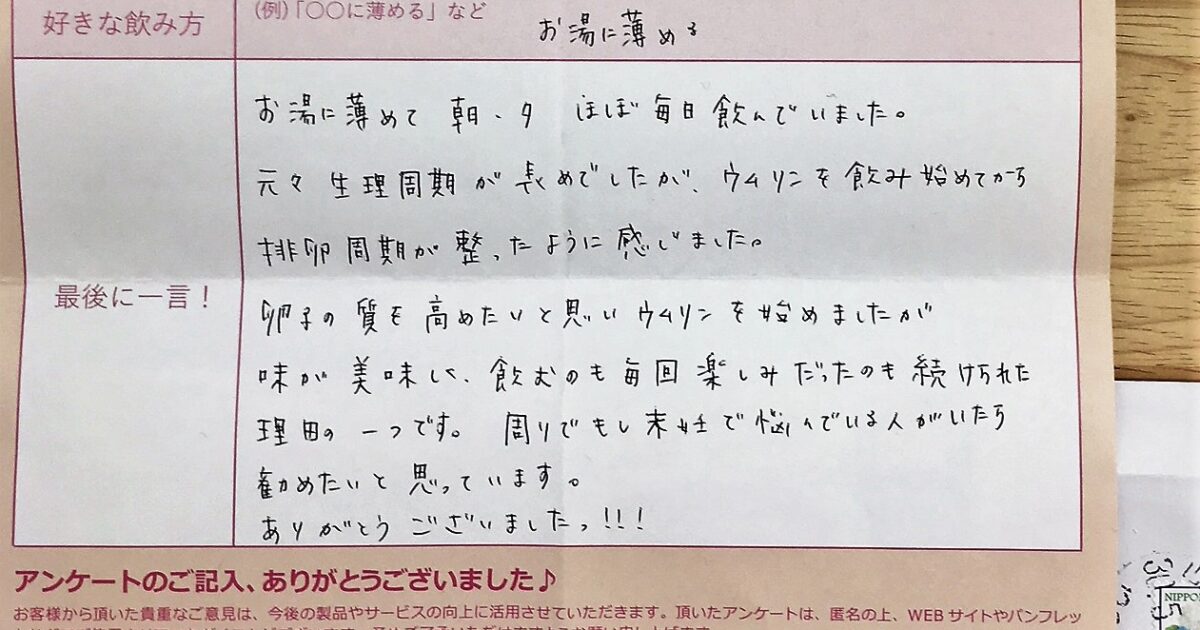 好きな飲み方
(例)「〇〇に薄める」など
お湯に薄める
お湯に薄めて 朝・夕 ほぼ毎日飲んでいました。
元々 生理周期が長めでしたが、ウムリンを飲み始めてから
排卵周期が整ったように感じました。
最後に一言!
卵子の質を高めたいと思いウムリンを始めましたが
味が美味しく、飲むのも毎回楽しみだったのも続けられた
理由の一つです。周りでもし未妊で悩んでいる人がいたら
勧めたいと思っています。
ありがとうございましたっ!!!
アンケートのご記入、ありがとうございました♪
お客様から頂いた貴重なご意見は、今後の製品やサービスの向上に活用させていただきます。頂いたアンケートは、匿名の上、WEBサイトやパンフレッ
NIPPON